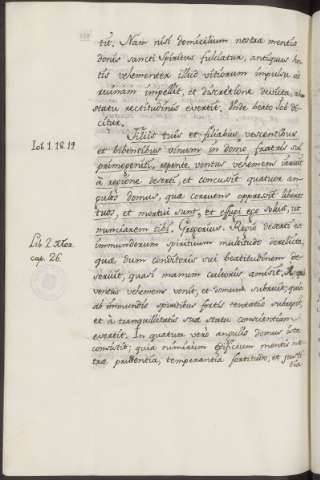 tit. Nam nisi domicilium nostræ mentis
donis sancti Spiritus fulciatur, antiquus hos
tis vehementer illud vitiorum impulsu ad
ruinam impellit, et discretione devicta, a
statu rectitudinis evertit. Unde beato Job di
citur.
Iob 1. 18. 19
Filiis tuis et filiabus vescentibus
et bibentibus vinum in domo fratris sui
primogeniti, repente ventus vehemens irruit
a regione deserti, et concussit quatuor an
gulos domus, quæ corruens oppressit liberos
tuos, et mortui sunt, et effugi ego solus, ut
nunciarem tibi. Gregorius. Regio deserti est
Lib. 2. Mor.
cap. 26.
immundorum spirituum multitudo derelicta,
quæ dum conditoris sui beatitudinem de
seruit, quasi manum cultoris amisit. A qua
ventus vehemens venit, et domum subruit; quia
ab immundis spiritibus fortis tentatio subrepit,
et a tranquillitatis suæ statu conscientiam
evertit. In quatuor vero angulis domus ista
consistit; quia nimirum ædificium mentis nos
træ prudentia, temperantia fortitudo, et justi
tia